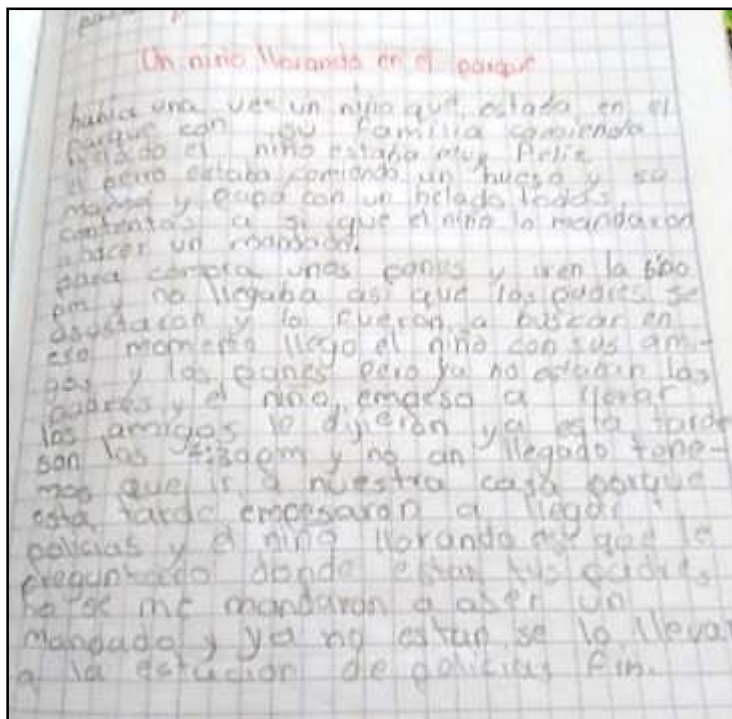 Un niño llorando en el parque
había una ves un niño que estada en el
parque con su familia comiendo
helado el niño estaba muy feliz
el perro estaba comiendo un hueso y su
mama y papá con un helado todos
contentos a si que el niño lo mandaron
a hacer un mandado.
para compra unos panes y eren la 6:00
pm y no llegaba asi que los padres se
asustaron y lo fueron a buscar en
ese momento llego el niño con sus ami-
gos y los panes pero ya no estaban los
padres y el niño empeso a llorar
los amigos le dijieron ya esta tarde
son las 7:30pm y no an llegado tene-
mos que ir a nuestra casa porque
esta tarde empesaron a llegar
policias y el niño llorando asi que le
preguntado donde estan tus padres
no se me mandaron a aser un
mandado y ya no estan se lo llevar
a la estacion de policias fin.